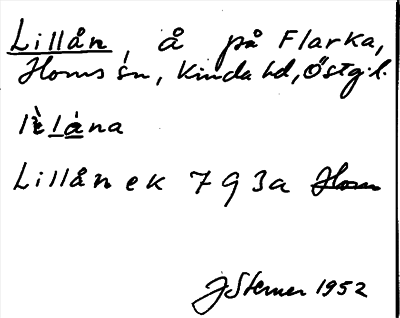 Lillån, å på Flarka,
Horns sn, Kinda hd, Östg.l.
lìlána
Lillån ek 79 3a Horn
J Sterner 1952